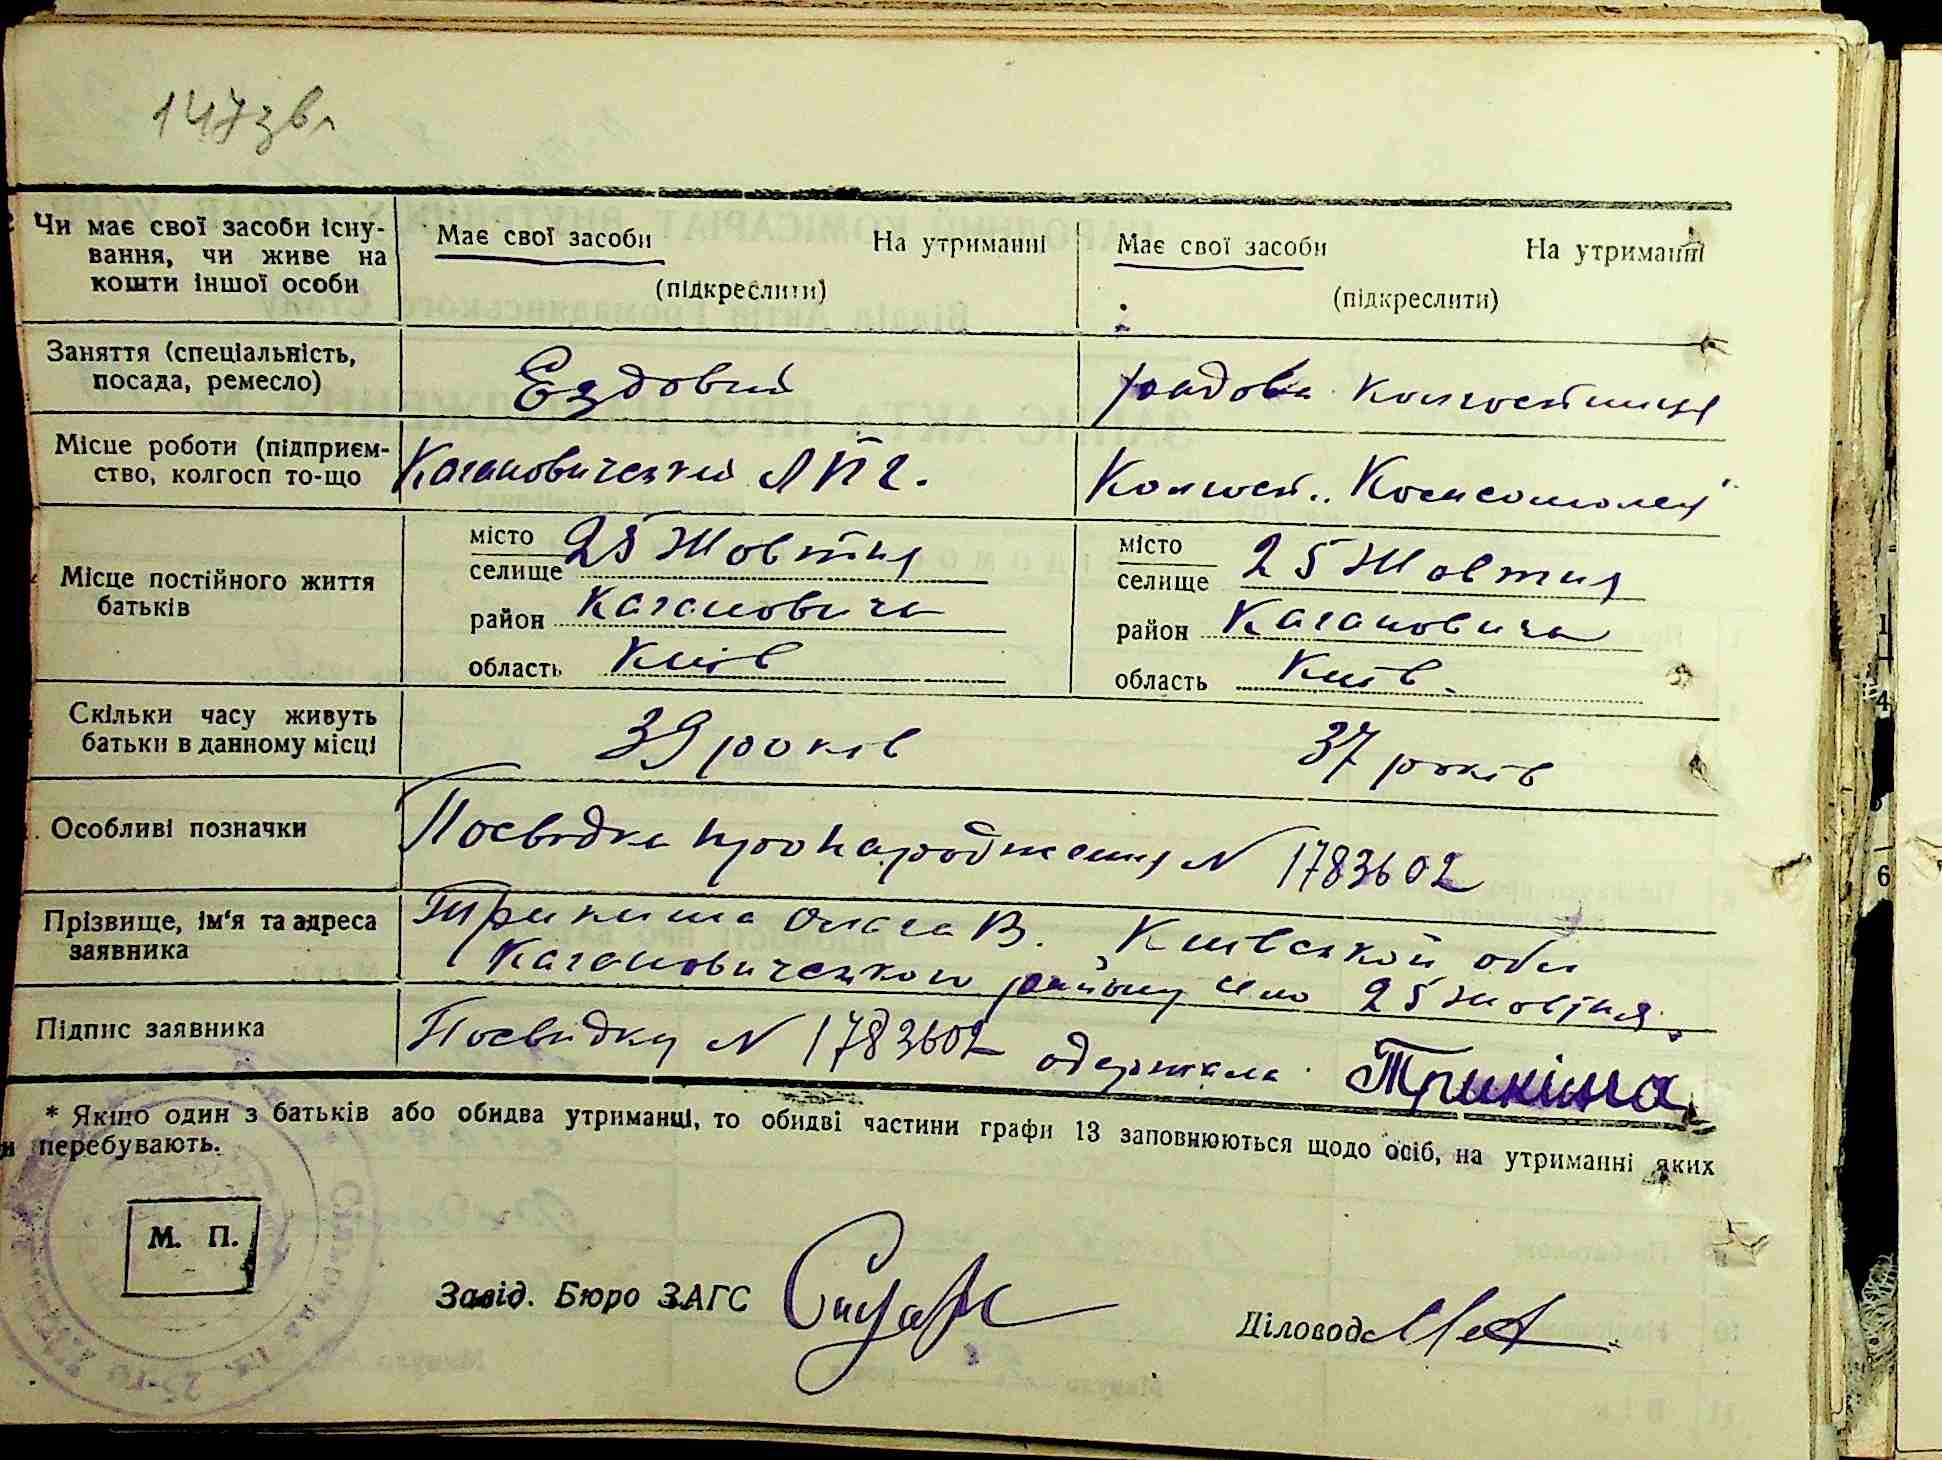 147зв.
Чи має свої засоби існу-
вання, чи живе на
кошти іншої особи
Має свої засоби На утриманні
(підкреслити)
Має свої засоби На утриманні
(підкреслити)
Заняття (спеціальність,
посада, ремесло)
Ездовий
рядова колгоспниця
Місце роботи (підприєм-
ство, колгосп то-що
Кагановичський ЛПГ.
Колгосп „Комсомолец"
Місце постійного життя
батьків
місто
селище 25 Жовтня
район Кагановича
область Київ
місто
селище 25 Жовтня
район Кагановича
область Київ.
Скільки часу живуть
батьки в данному місці
39 років
37 років
Особливі позначки
Посвідка про народження N 1783602
Прізвище, ім'я та адреса
заявника
Трикиша Ольга В. Київськой обл
Кагановичського району село 25 Жовтня.
Підпис заявника
Посвідку N 1783602 одержала
* Якщо один з батьків або обидва утриманці, то обидві частини графи 13 заповнюються щодо осіб, на утриманні яких
и перебувають.
М. П.
Завід. Бюро ЗАГС
Діловод